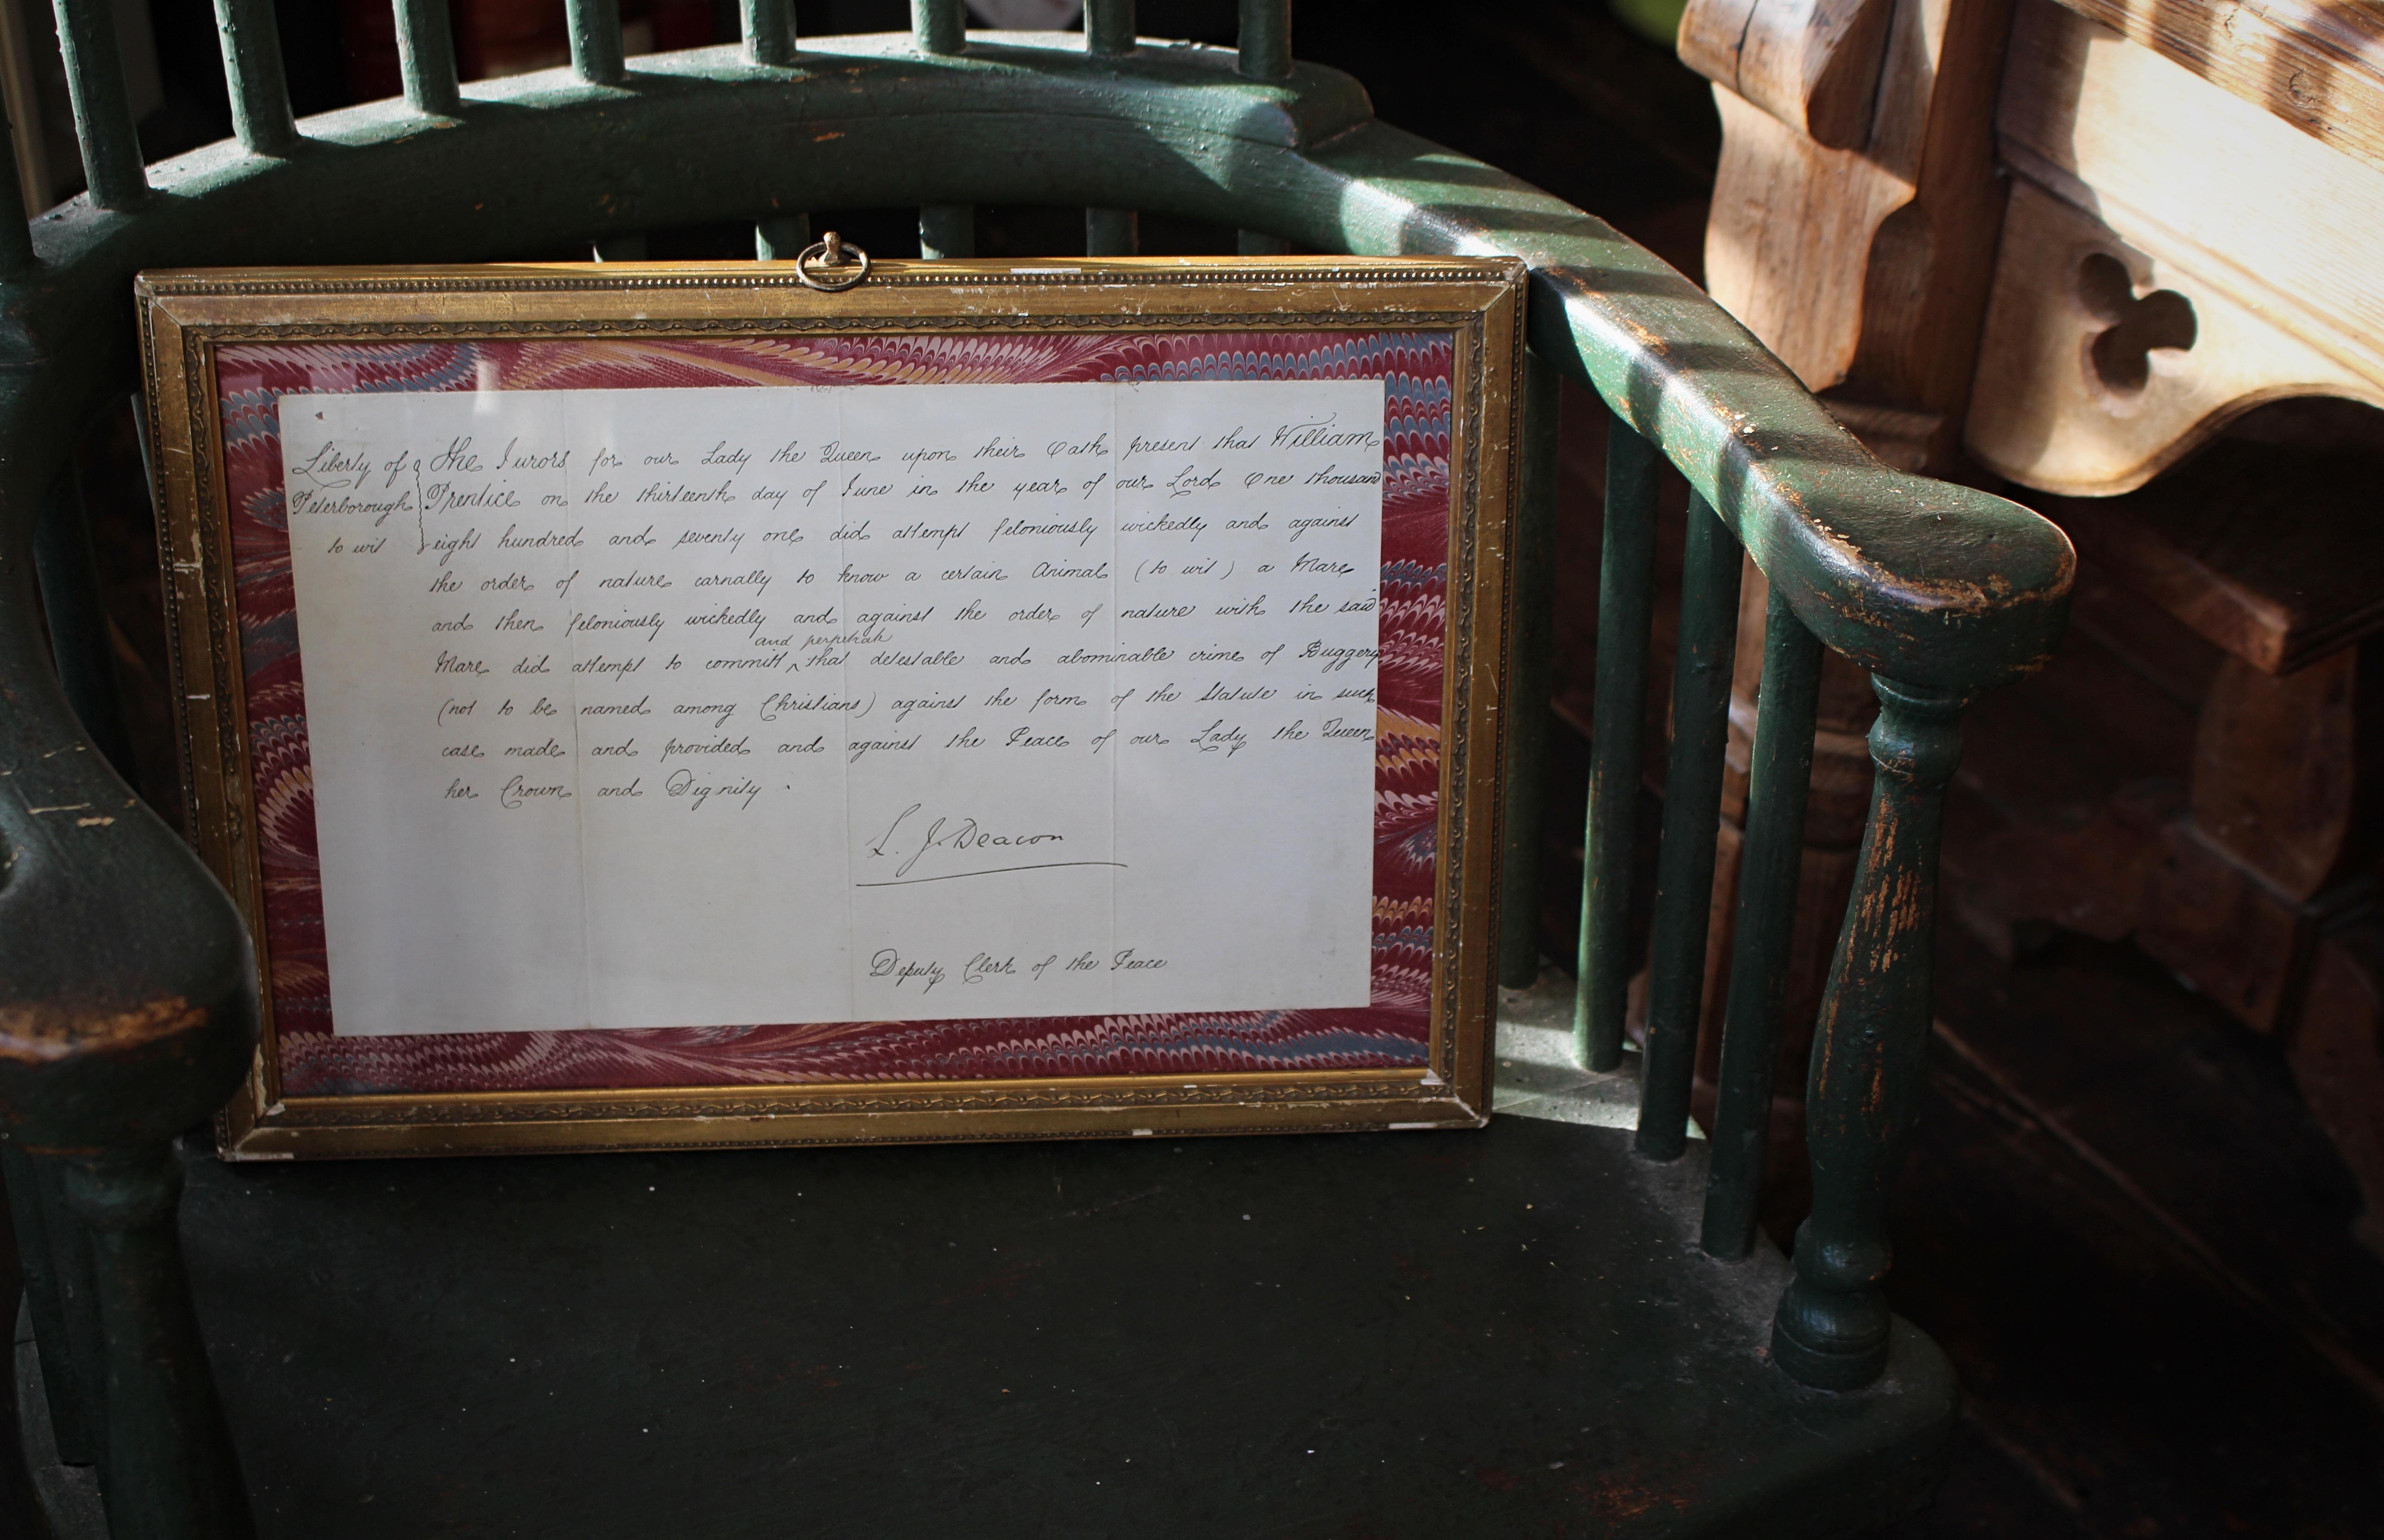 Liberty of The Jurors for our Lady the Queen upon their Oath present that William
Peterborough Prentice on the thirteenth day of June in the year of our Lord One thousand
to wit eight hundred and seventy one did attempt feloniously wickedly and against
the order of nature carnally to know a certain Animal (to wit) a Mare
and then feloniously wickedly and against the order of nature with the said
and perpetrate
Mare did attempt to committ ‸ that detestable and abominable crime of Buggery
(not to be named among Christians) against the form of the Statute in such
case made and provided and against the Peace of our Lady the Queen
her Crown and Dignity .
L. J. Deacon
Deputy Clerk of the Peace